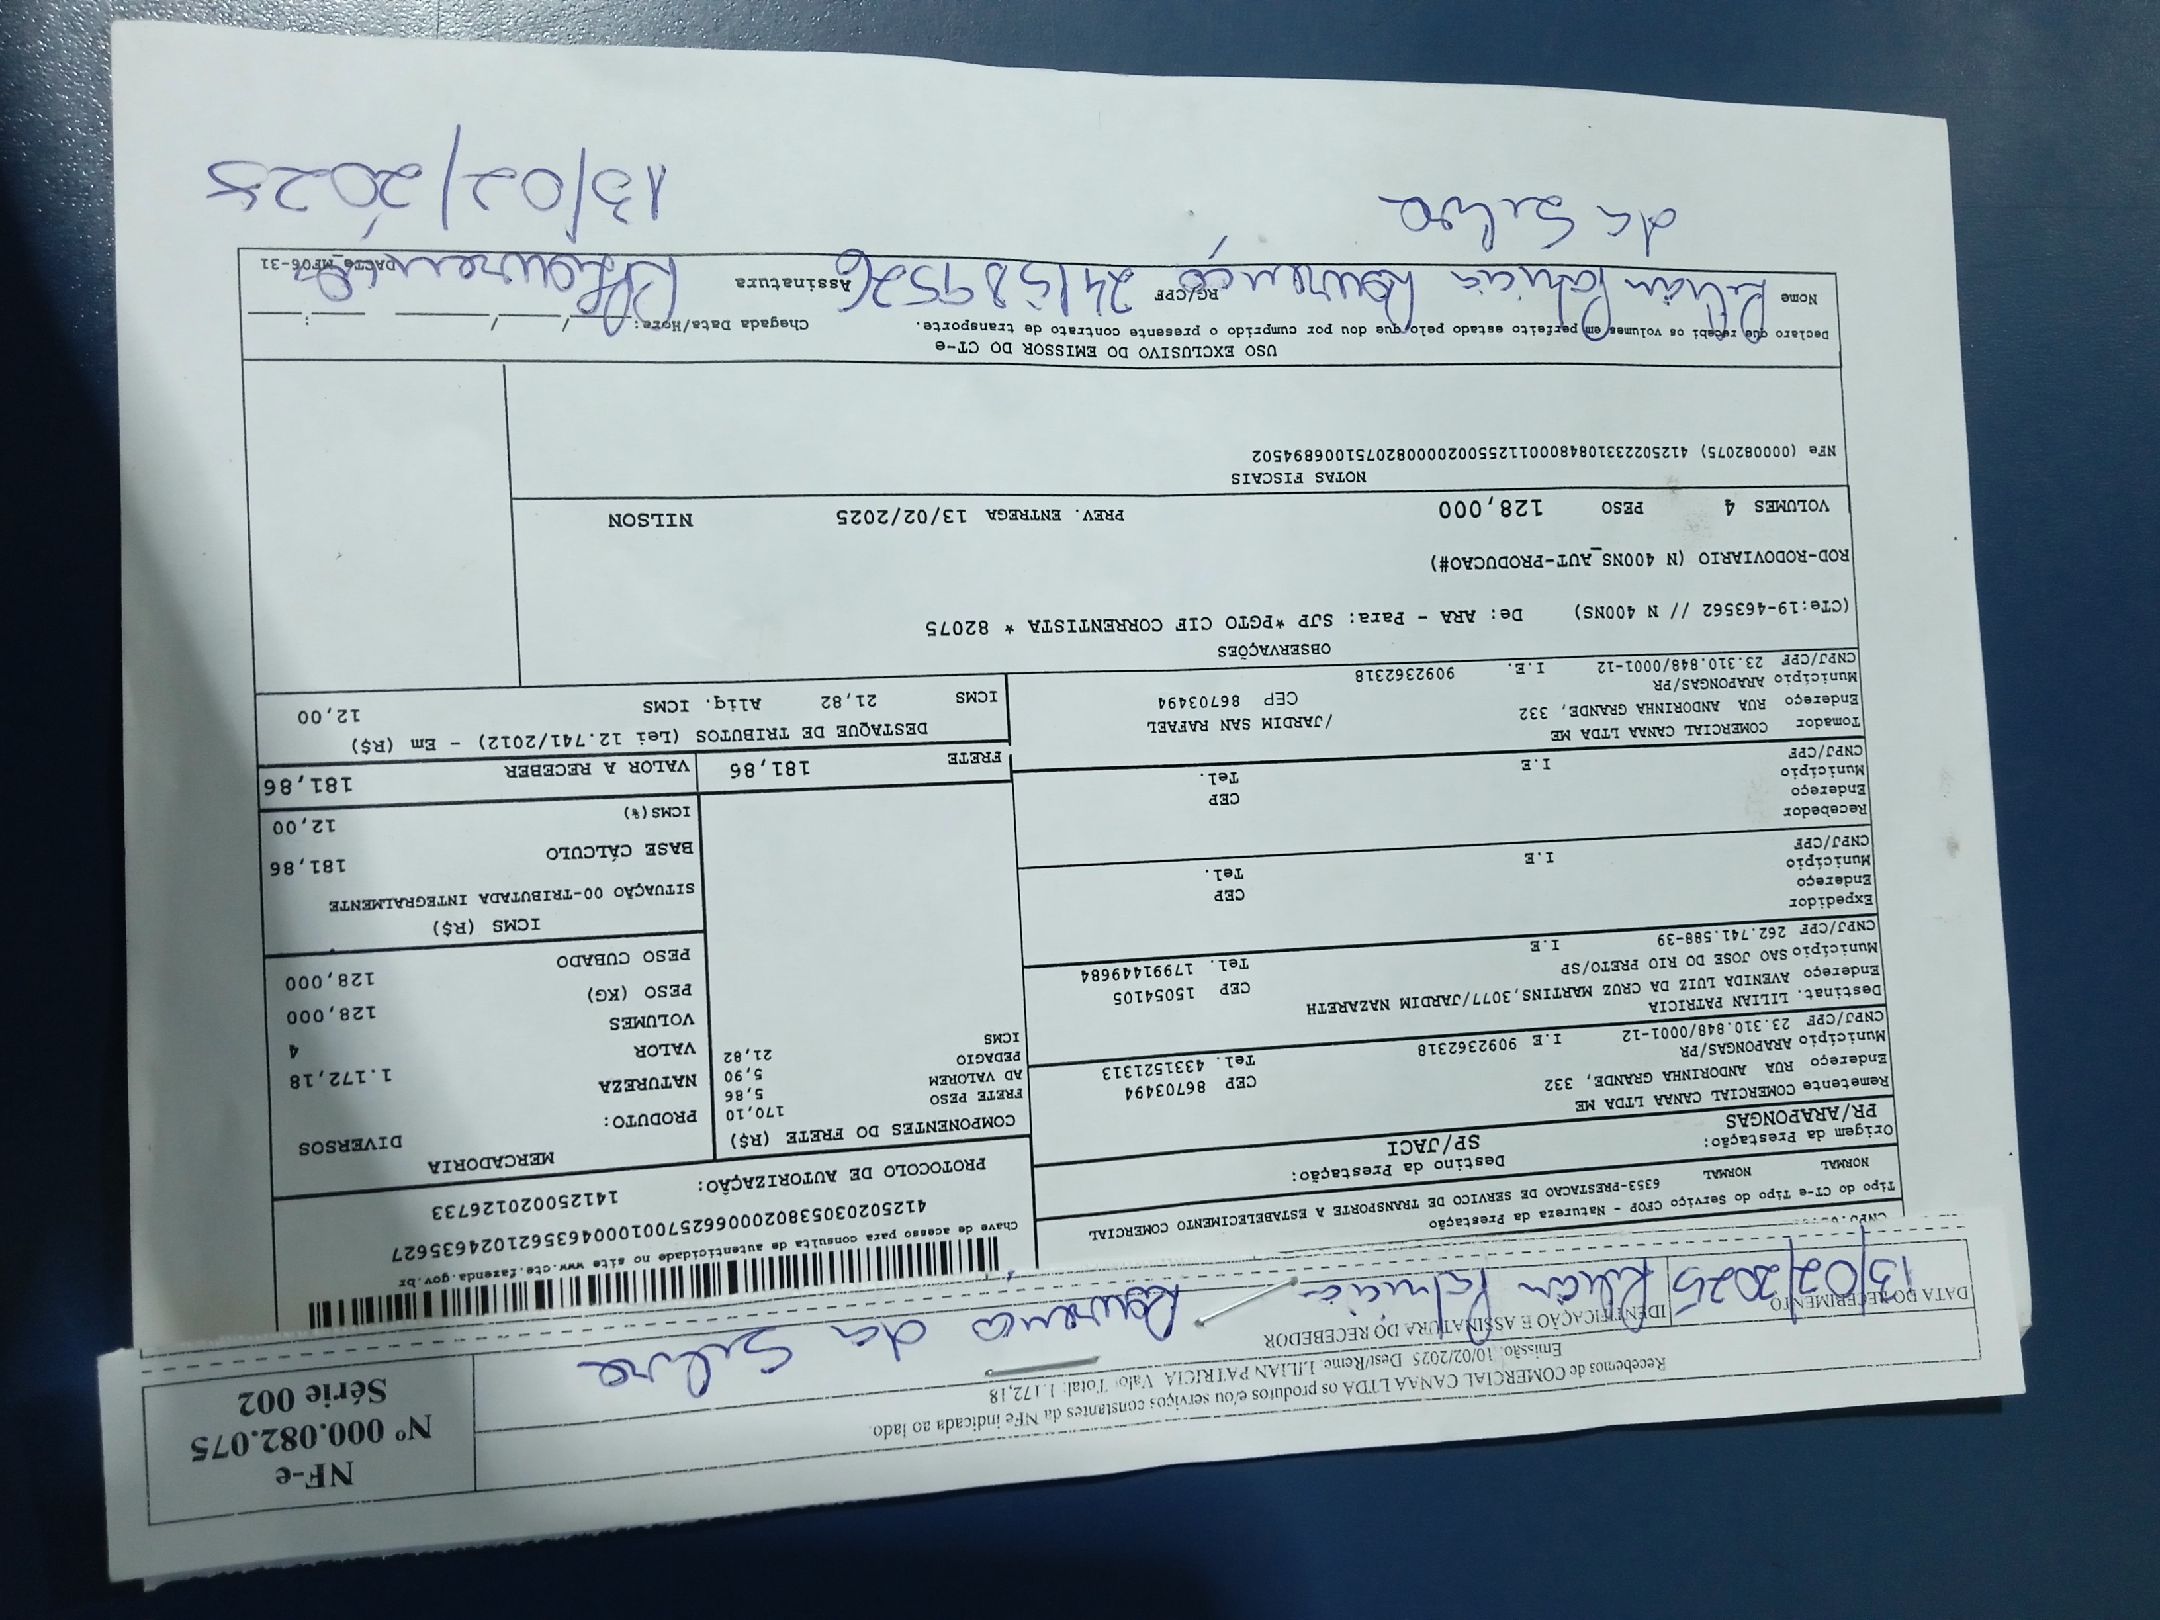 Recebemos de COMERCIAL CANAA LTDA os produtos e/ou serviços constantes da NFe indicada ao lado.
Emissão: 10/02/2025 Dest/Reme: LILIAN PATRICIA Valor Total: 1.172,18
NF-e
Nº 000.082.075
Série 002
DATA DO RECEBIMENTO
13/02/2025
IDENTIFICAÇÃO E ASSINATURA DO RECEBEDOR
Lilian Patricia Lourenco da Silva
Tipo do CT-e Tipo do Serviço CFOP - Natureza da Prestação
NORMAL NORMAL 6353-PRESTACAO DE SERVICO DE TRANSPORTE A ESTABELECIMENTO COMERCIAL
Origem da Prestação: Destino da Prestação:
PR/ARAPONGAS SP/JACI
Remetente COMERCIAL CANAA LTDA ME
Endereço RUA ANDORINHA GRANDE, 332
Município ARAPONGAS/PR CEP 86703494
CNPJ/CPF 23.310.848/0001-12 I.E 9092362318 Tel. 4331521313
Destinat. LILIAN PATRICIA
Endereço AVENIDA LUIZ DA CRUZ MARTINS,3077/JARDIM NAZARETH
Município SAO JOSE DO RIO PRETO/SP CEP 15054105
CNPJ/CPF 262.741.588-39 I.E Tel. 17991449684
Expedidor
Endereço
Município CEP
CNPJ/CPF I.E Tel.
Recebedor
Endereço
Município CEP
CNPJ/CPF I.E Tel.
Tomador COMERCIAL CANAA LTDA ME
Endereço RUA ANDORINHA GRANDE, 332 /JARDIM SAN RAFAEL
Município ARAPONGAS/PR CEP 86703494
CNPJ/CPF 23.310.848/0001-12 I.E. 9092362318
Chave de acesso para consulta de autenticidade no site www.cte.fazenda.gov.br
PROTOCOLO DE AUTORIZAÇÃO: 141250020126733
COMPONENTES DO FRETE (R$)
FRETE PESO 170,10
AD VALOREM 5,86
PEDAGIO 5,90
ICMS 21,82
MERCADORIA
PRODUTO: DIVERSOS
NATUREZA
VALOR 1.172,18
VOLUMES 4
PESO (KG) 128,000
PESO CUBADO 128,000
ICMS (R$)
SITUAÇÃO 00-TRIBUTADA INTEGRALMENTE
BASE CÁLCULO 181,86
ICMS(%) 12,00
FRETE 181,86 VALOR A RECEBER 181,86
DESTAQUE DE TRIBUTOS (Lei 12.741/2012) - Em (R$)
ICMS 21,82 Aliq. ICMS 12,00
OBSERVAÇÕES
(CTe:19-463562 // N 400NS) De: ARA - Para: SJP *PGTO CIF CORRENTISTA * 82075
ROD-RODOVIARIO (N 400NS_AUT-PRODUCAO#)
VOLUMES 4 PESO 128,000 PREV. ENTREGA 13/02/2025 NILSON
NOTAS FISCAIS
NFe (000082075) 41250223310848000112550020000820751006894502
USO EXCLUSIVO DO EMISSOR DO CT-e
Declaro que recebi os volumes em perfeito estado pelo que dou por cumprido o presente contrato de transporte. Chegada Data/Hora: ____/____/________ ____:____
Nome Lilian Patricia Lourenço RG/CPF Assinatura
DACTE_MF06-31
da Silva
13/02/2025